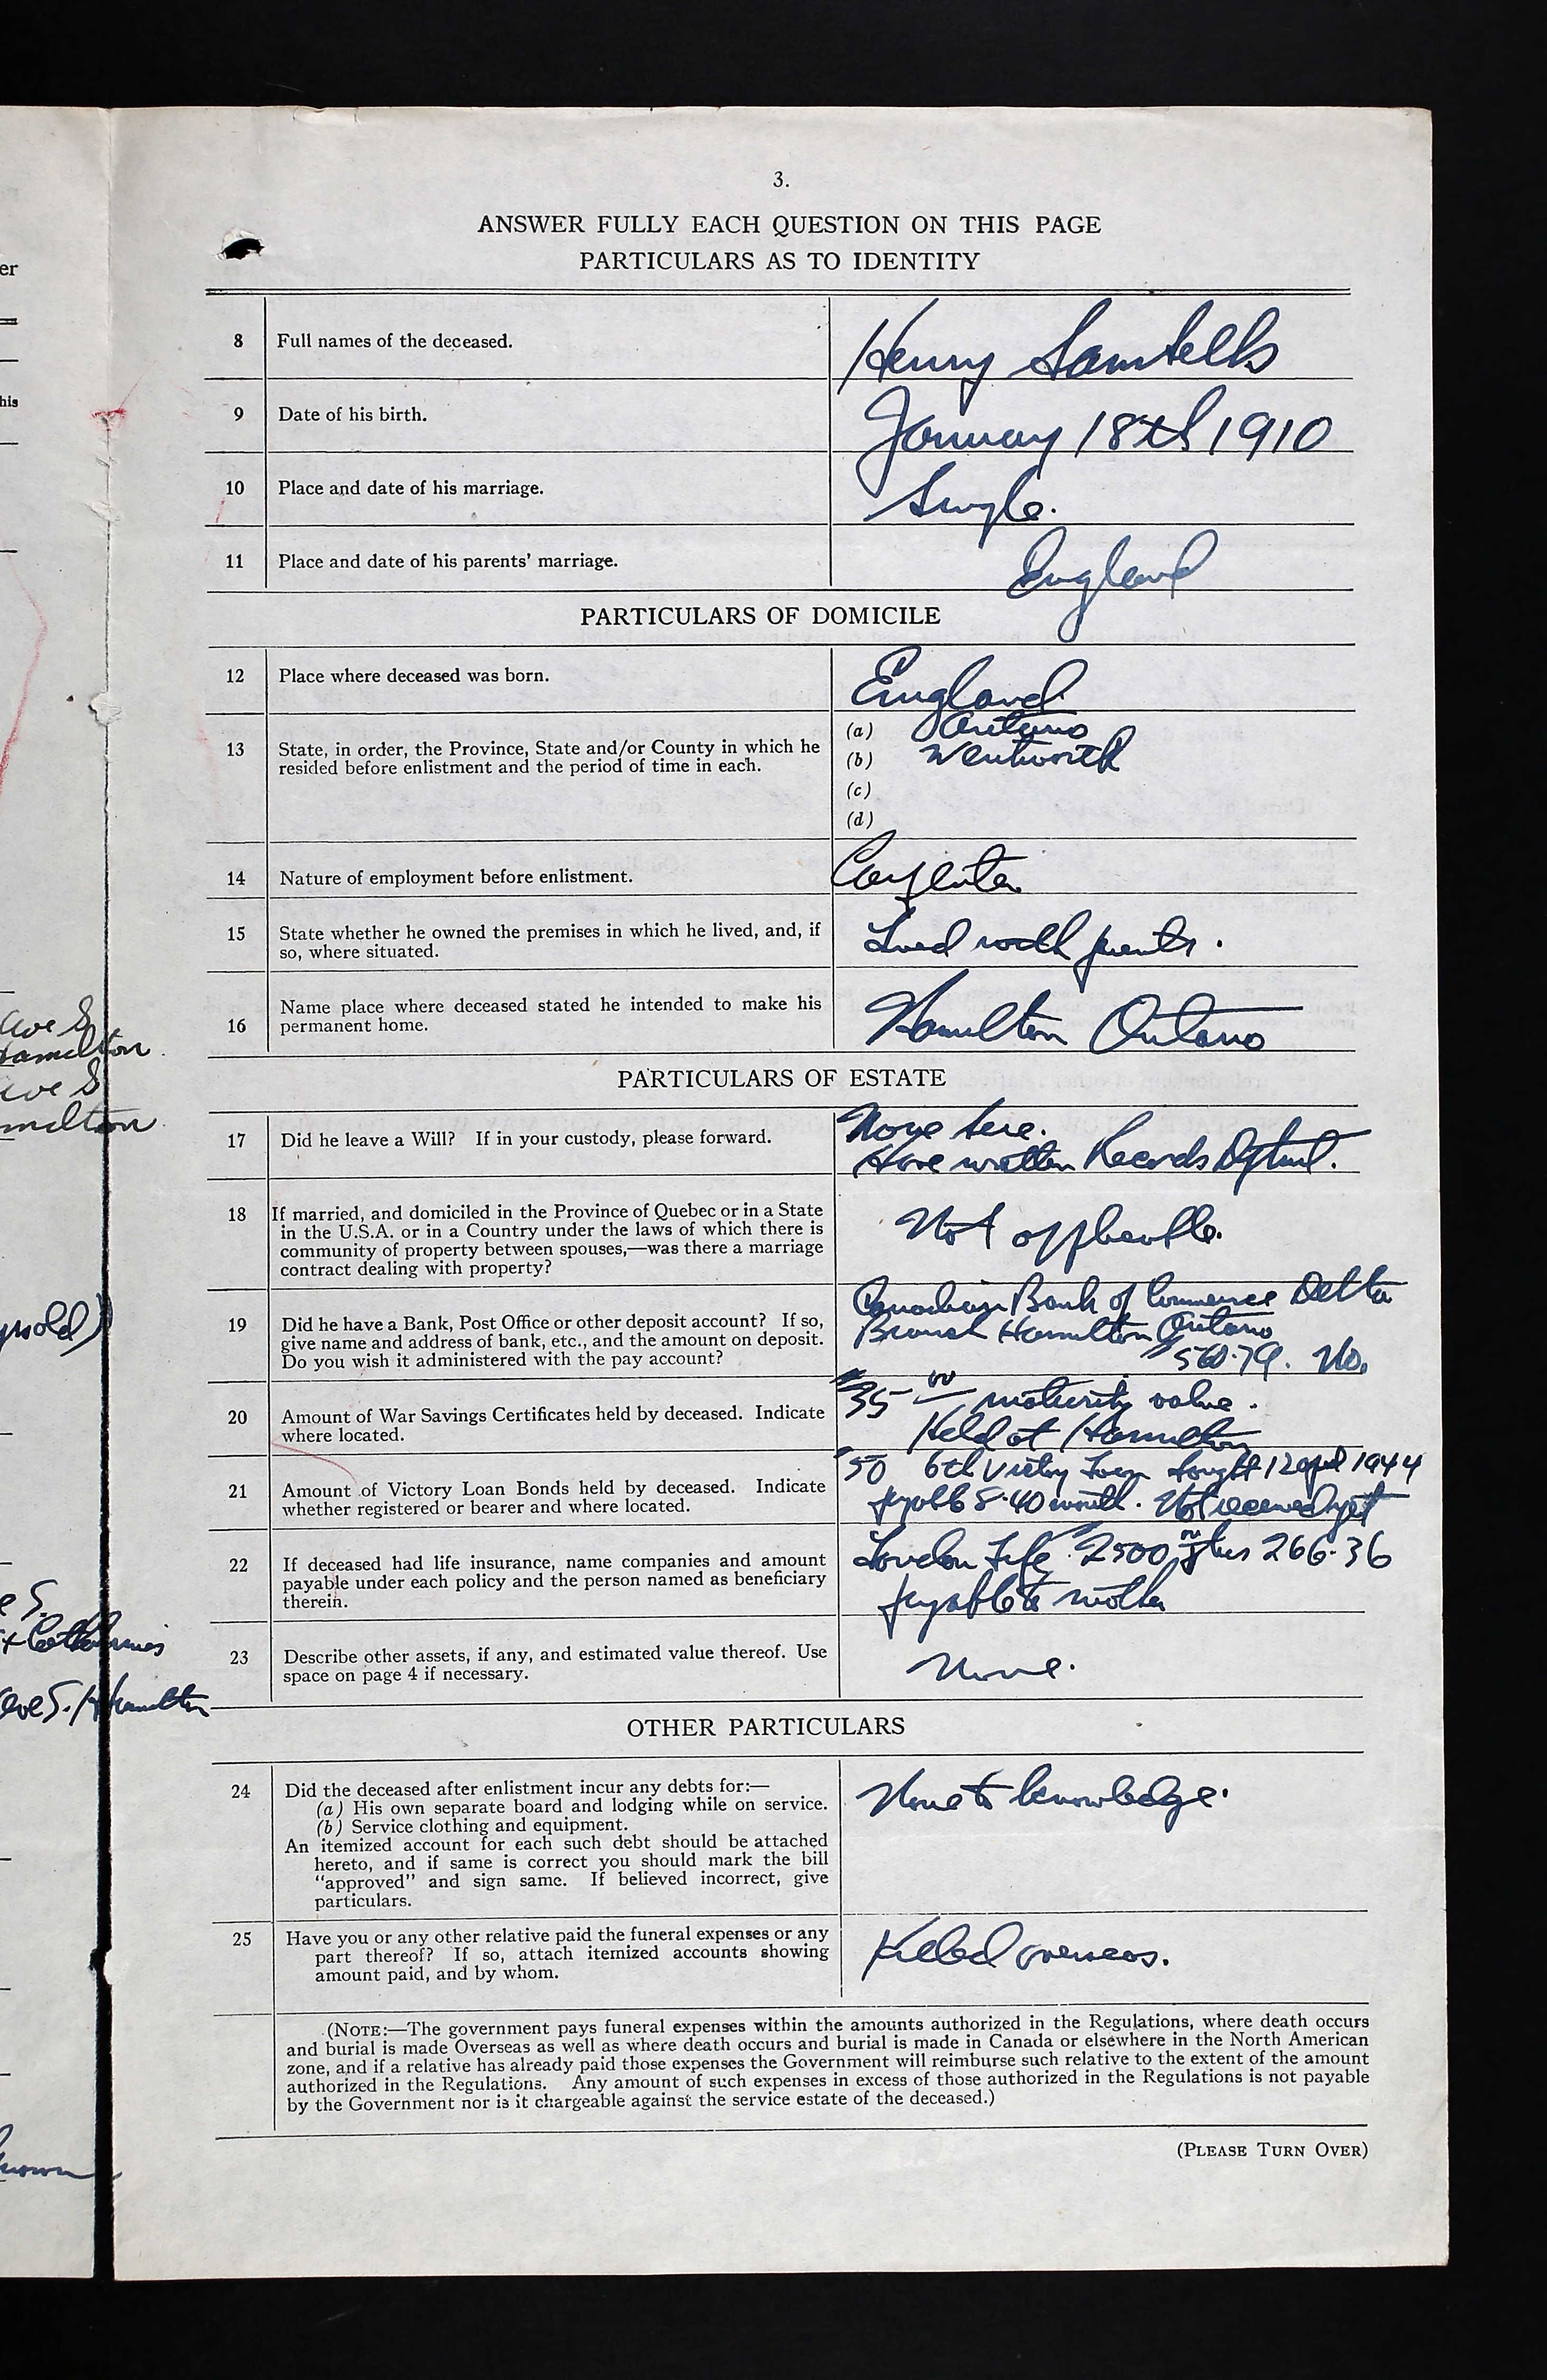 3.
ANSWER FULLY EACH QUESTION ON THIS PAGE
PARTICULARS AS TO IDENTITY
8 Full names of the deceased. Henry
9 Date of his birth. January 18th 1910
10 Place and date of his marriage. Single.
11 Place and date of his parents' marriage. England
PARTICULARS OF DOMICILE
12 Place where deceased was born. England
13 State, in order, the Province, State and/or County in which he
resided before enlistment and the period of time in each.
(a) Ontario
(b) Wentworth
(c)
(d)
14 Nature of employment before enlistment. Carpenter
15 State whether he owned the premises in which he lived, and, if
so, where situated.
Lived with parents.
16 Name place where deceased stated he intended to make his
permanent home.
Hamilton Ontario
PARTICULARS OF ESTATE
17 Did he leave a Will? If in your custody, please forward.
None here.
Have written Records
18 If married, and domiciled in the Province of Quebec or in a State
in the U.S.A. or in a Country under the laws of which there is
community of property between spouses,—was there a marriage
contract dealing with property?
Not applicable.
19 Did he have a Bank, Post Office or other deposit account? If so,
give name and address of bank, etc., and the amount on deposit.
Do you wish it administered with the pay account?
Canadian Bank of Commerce Delta
Branch Hamilton Ontario
560.79. No.
20 Amount of War Savings Certificates held by deceased. Indicate
where located.
35 00 maturity value.
Held at Hamilton
21 Amount of Victory Loan Bonds held by deceased. Indicate
whether registered or bearer and where located.
50 6th Victory Loan bought 12 april 1944
8.40 month. Not received yet
22 If deceased had life insurance, name companies and amount
payable under each policy and the person named as beneficiary
therein.
London Life 2500 00 plus 266.36
payable to mother
23 Describe other assets, if any, and estimated value thereof. Use
space on page 4 if necessary.
None.
OTHER PARTICULARS
24 Did the deceased after enlistment incur any debts for:—
(a) His own separate board and lodging while on service.
(b) Service clothing and equipment.
An itemized account for each such debt should be attached
hereto, and if same is correct you should mark the bill
"approved" and sign same. If believed incorrect, give
particulars.
None to knowledge.
25 Have you or any other relative paid the funeral expenses or any
part thereof? If so, attach itemized accounts showing
amount paid, and by whom.
Killed overseas.
(NOTE:—The government pays funeral expenses within the amounts authorized in the Regulations, where death occurs
and burial is made Overseas as well as where death occurs and burial is made in Canada or elsewhere in the North American
zone, and if a relative has already paid those expenses the Government will reimburse such relative to the extent of the amount
authorized in the Regulations. Any amount of such expenses in excess of those authorized in the Regulations is not payable
by the Government nor is it chargeable against the service estate of the deceased.)
(PLEASE TURN OVER)